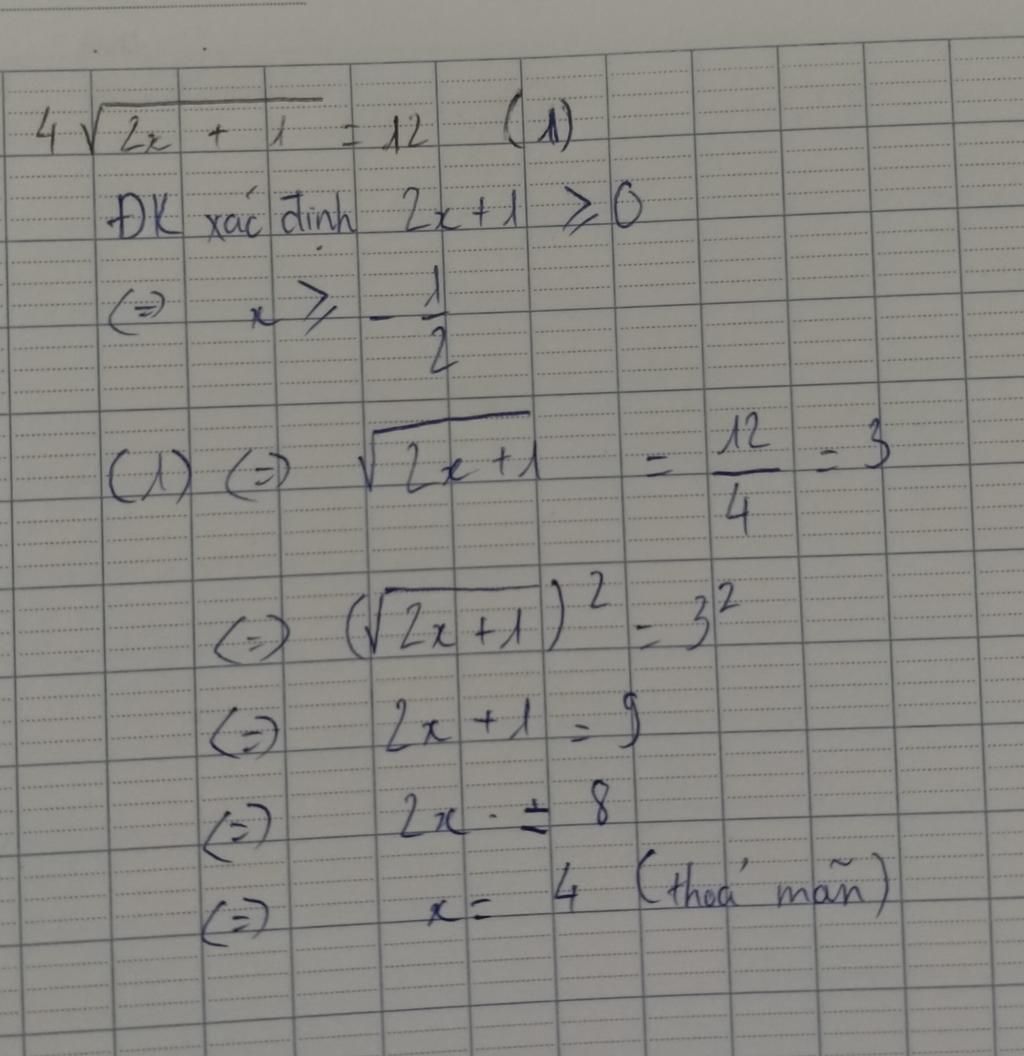 4√(2x + 1) = 12 (1)
ĐK xác định 2x+1 ⩾ 0
(=) x ⩾ - 1/2
(1) (=) √(2x+1) = 12/4 = 3
(=) (√(2x+1))² = 3²
(=) 2x+1 = 9
(=) 2x = 8
(=) x = 4 (thoả mãn)